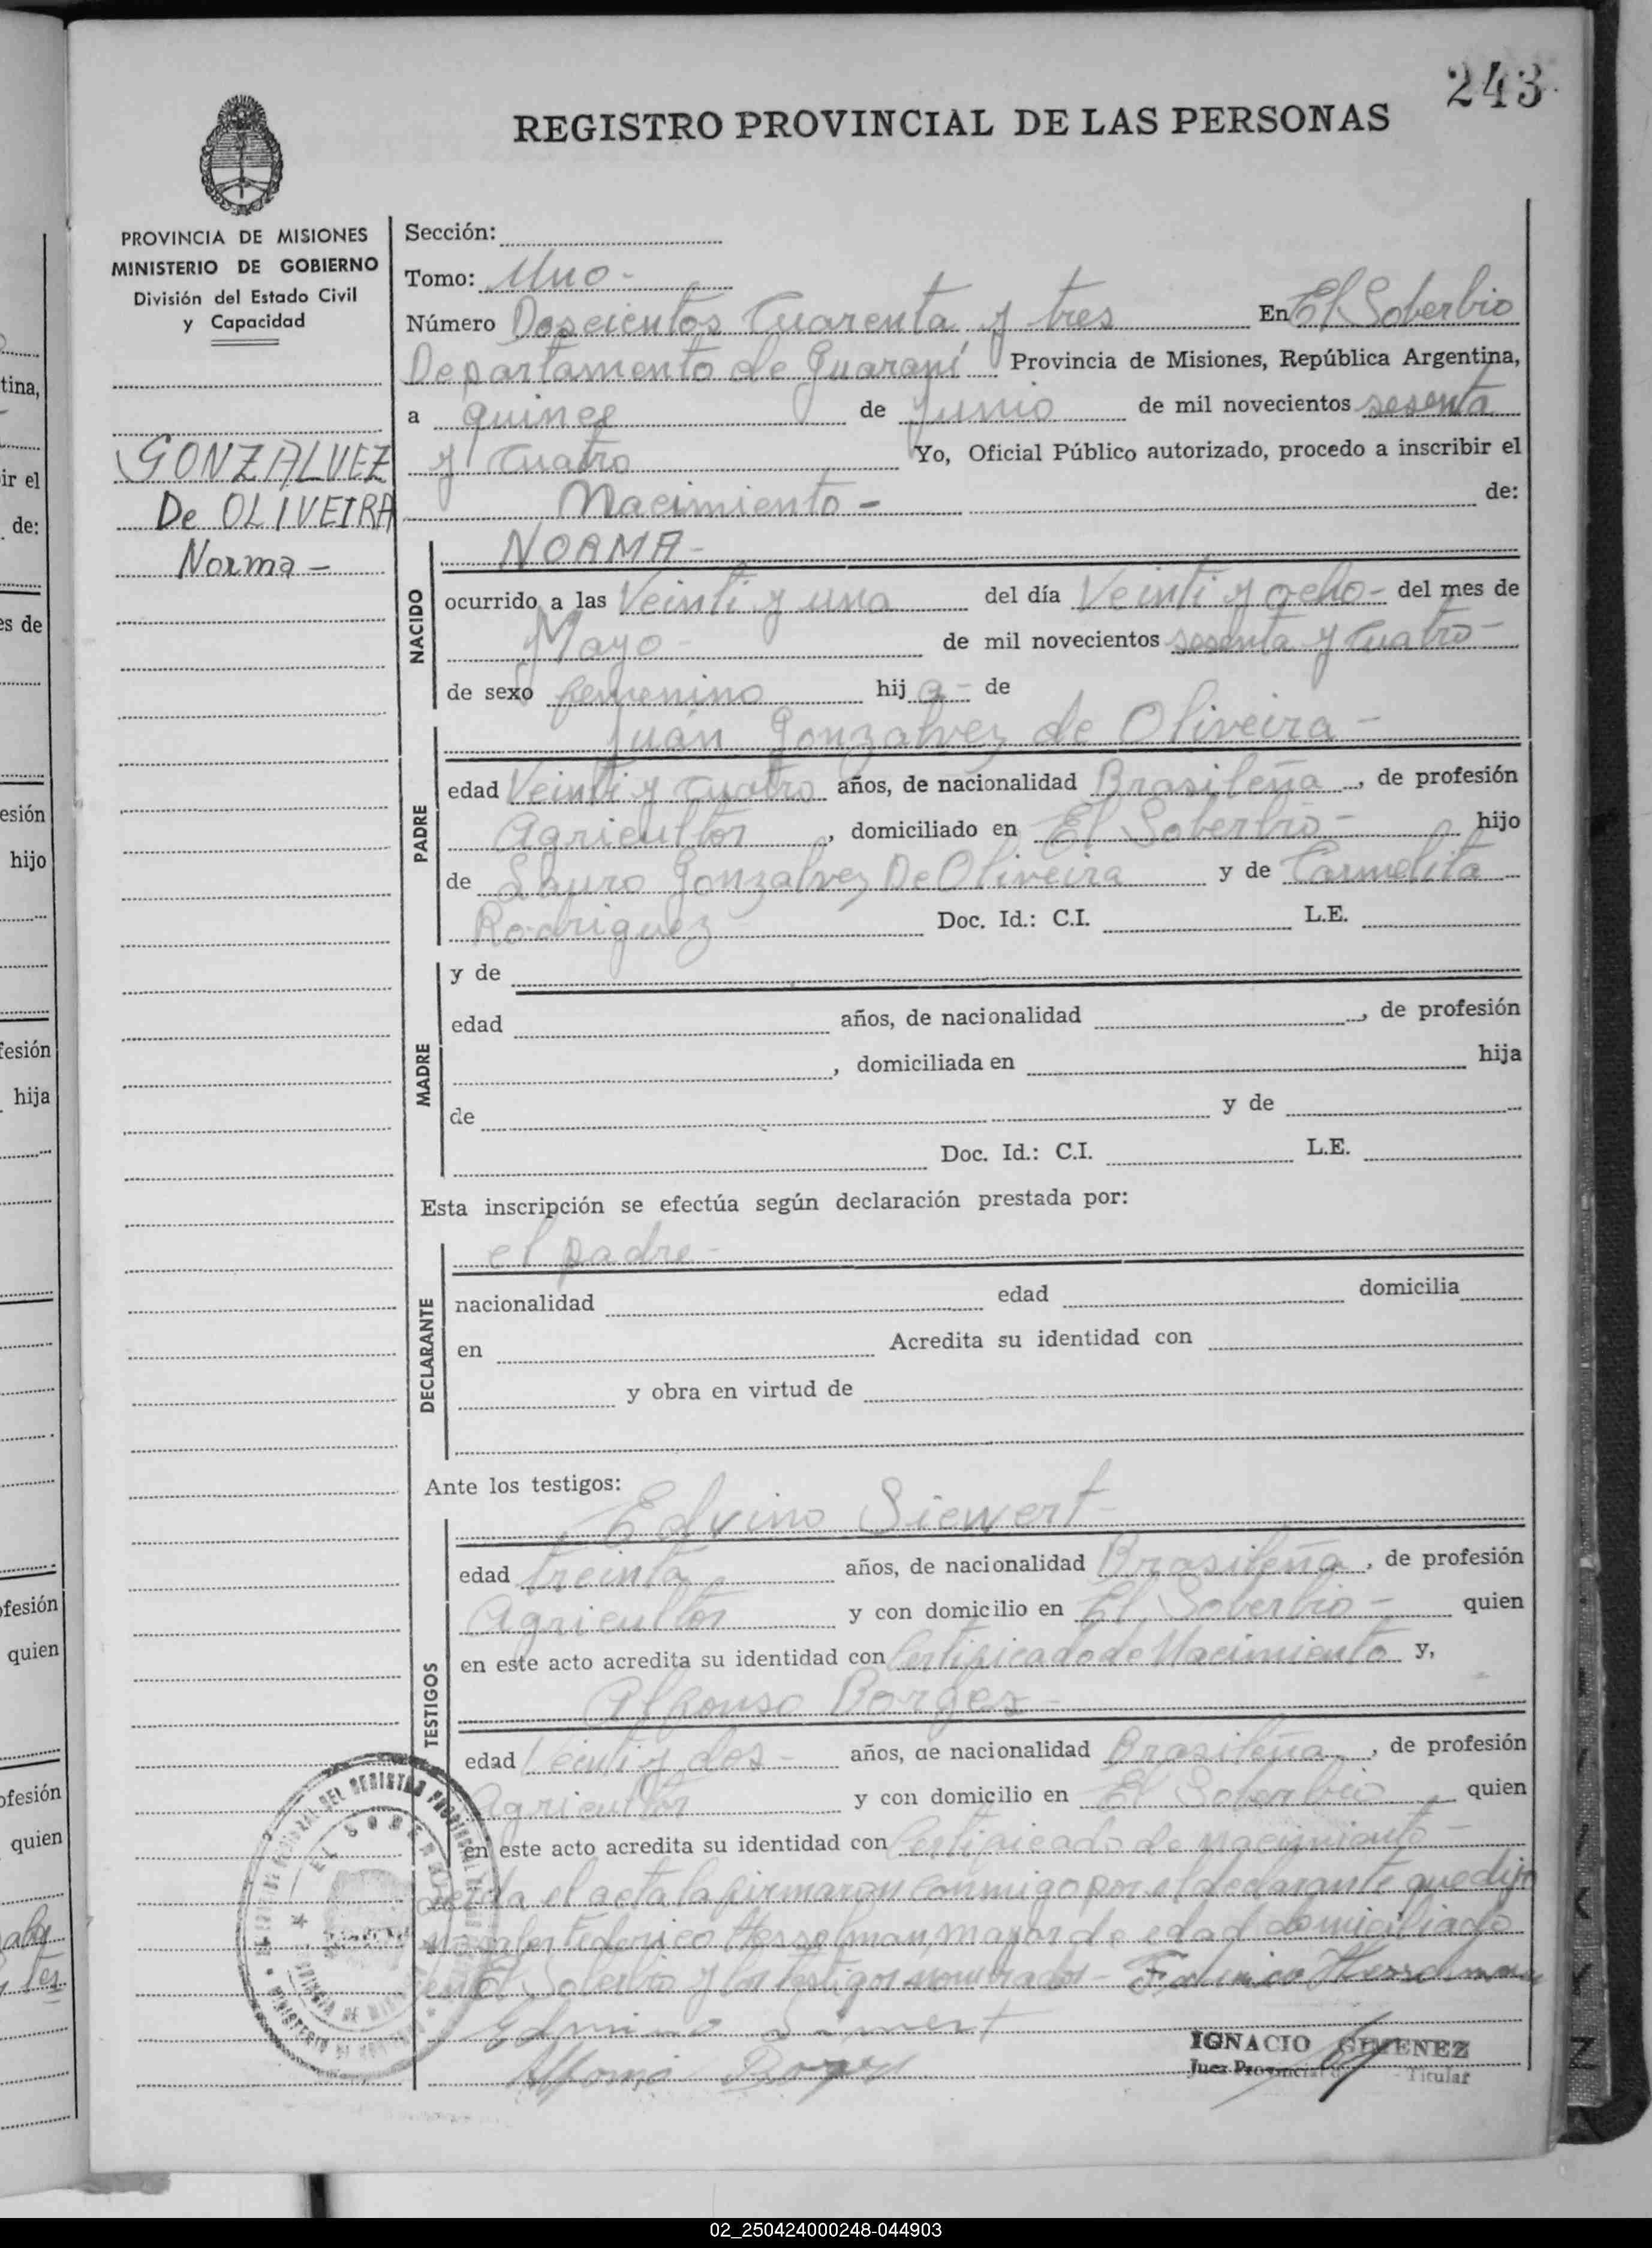 243
REGISTRO PROVINCIAL DE LAS PERSONAS
PROVINCIA DE MISIONES
MINISTERIO DE GOBIERNO
División del Estado Civil
y Capacidad
GONZALVEZ
De OLIVEIRA
Norma -
Sección:
Tomo: Uno -
Número Doscientos Cuarenta y tres En El Soberbio
Departamento de Guaraní Provincia de Misiones, República Argentina,
a quince de Junio de mil novecientos sesenta
y Cuatro Yo, Oficial Público autorizado, procedo a inscribir el
Nacimiento - de:
NACIDO
NORMA -
ocurrido a las Veinti y una del día Veinti y ocho - del mes de
Mayo - de mil novecientos sesenta y Cuatro -
de sexo femenino hij a - de
PADRE
Juan Gonzalvez de Oliveira -
edad Veinti y Cuatro años, de nacionalidad Brasileña, de profesión
Agricultor, domiciliado en El Soberbio - hijo
de Lauro Gonzalvez De Oliveira y de Carmelita
Rodriguez Doc. Id.: C.I. L.E.
MADRE
y de
edad años, de nacionalidad , de profesión
, domiciliada en hija
de y de
Doc. Id.: C.I. L.E.
Esta inscripción se efectúa según declaración prestada por:
DECLARANTE
el padre -
nacionalidad edad domicilia
en Acredita su identidad con
y obra en virtud de
Ante los testigos:
TESTIGOS
Edvino Siewert -
edad treinta años, de nacionalidad Brasileña, de profesión
Agricultor y con domicilio en El Soberbio - quien
en este acto acredita su identidad con Certificado de Nacimiento y,
Alfonso Borges -
edad Veinti y dos - años, de nacionalidad Brasileña, de profesión
Agricultor y con domicilio en El Soberbio quien
en este acto acredita su identidad con Certificado de nacimiento -
el acta la firmaron conmigo por el declarante que dijo
Federico mayor de edad domiciliado
en El Soberbio y los testigos nombrados -
IGNACIO GIMENEZ
Juez Provincial Titular
02_250424000248-044903